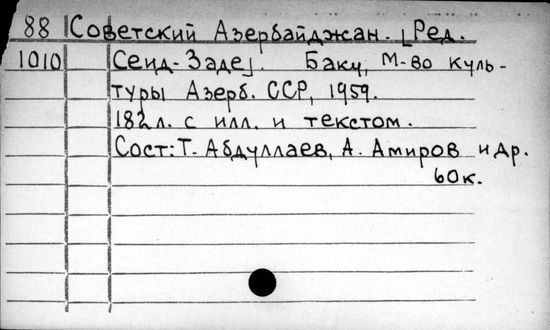 88 Советский Азербайджан. [Ред.
1010 Сеид-Заде]. Баку, М-во куль-
туры Азерб. ССР, 1959.
182 л. с илл. и текстом.
Сост: Т. Абдуллаев, А. Амиров и др.
60к.